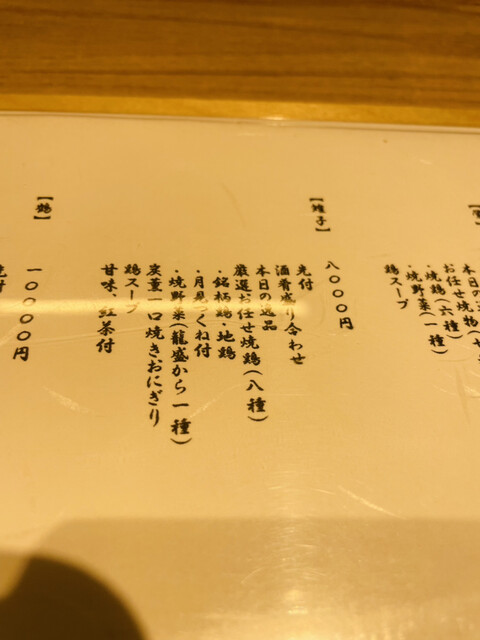 本日の逸
お任せ焼物(七
・焼鶏(六種)
・焼野菜(一種)
鶏スープ
【雉子】
八〇〇〇円
先付
酒肴盛り合わせ
本日の逸品
厳選お任せ焼鶏(八種)
・銘柄鶏・地鶏
・月見つくね付
・焼野菜(籠盛から一種)
炭薫一口焼きおにぎり
鶏スープ
甘味、紅茶付
【鶴】
一〇〇〇〇円
先付